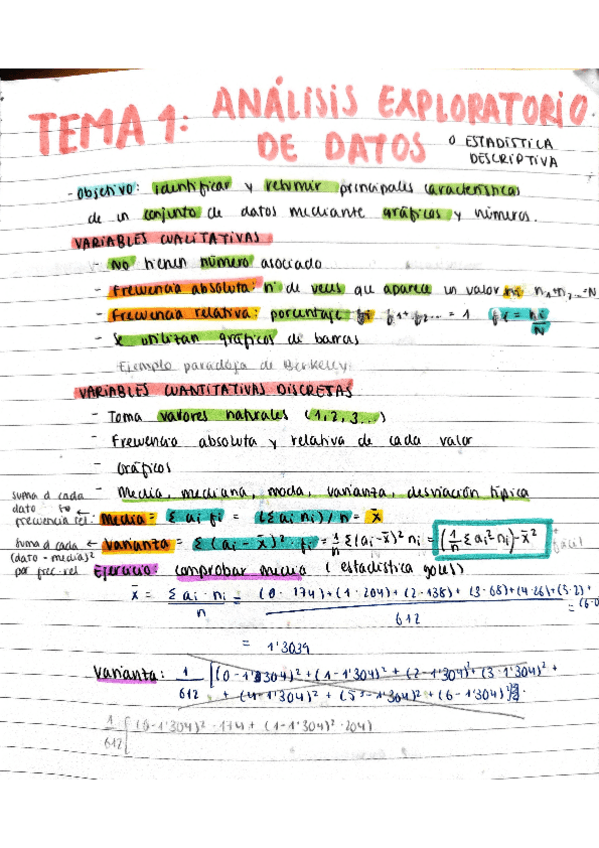 TEMA 1: ANÁLISIS EXPLORATORIO
DE DATOS o ESTADÍSTICA
DESCRIPTIVA
- Objetivo: identificar y resumir principales características
de un conjunto de datos mediante gráficos y números.
VARIABLES CUALITATIVAS
- No tienen número asociado
- Frecuencia absoluta: nº de veces que aparece un valor ni n1+n2...=N
- Frecuencia relativa: porcentaje fi f1+f2... = 1 fi = ni/N
- Se utilizan gráficos de barras
Ejemplo paradoja de Berkelly
VARIABLES CUANTITATIVAS DISCRETAS
- Toma valores naturales (1,2,3...)
- Frecuencia absoluta y relativa de cada valor
- Gráficos
- Media, mediana, moda, varianza, desviación típica
suma d cada
dato
frecuencia rel. ← Media = Σ ai fi = (Σ ai ni) / n = x̄
suma d cada
(dato - media)²
por frec. rel ← Varianza = Σ (ai - x̄)² · fi = 1/n Σ(ai - x̄)² ni = (1/n Σ ai² ni) - x̄²
Ejercicio: comprobar media (estadística goles)
x̄ = Σ ai · ni / n = (0 · 174) + (1 · 204) + (2 · 138) + (3 · 68) + (4 · 26) + (5 · 2) + / 612 = (6·0
= 1'3039
Varianza: 1/612 [(0 - 1'304)² + (1 - 1'304)² + (2 - 1'304)² + (3 - 1'304)² +
+ (4 - 1'304)² + (5 - 1'304)² + (6 - 1'304)²
1/612 [(0 - 1'304)² · 174 + (1 - 1'304)² · 204)